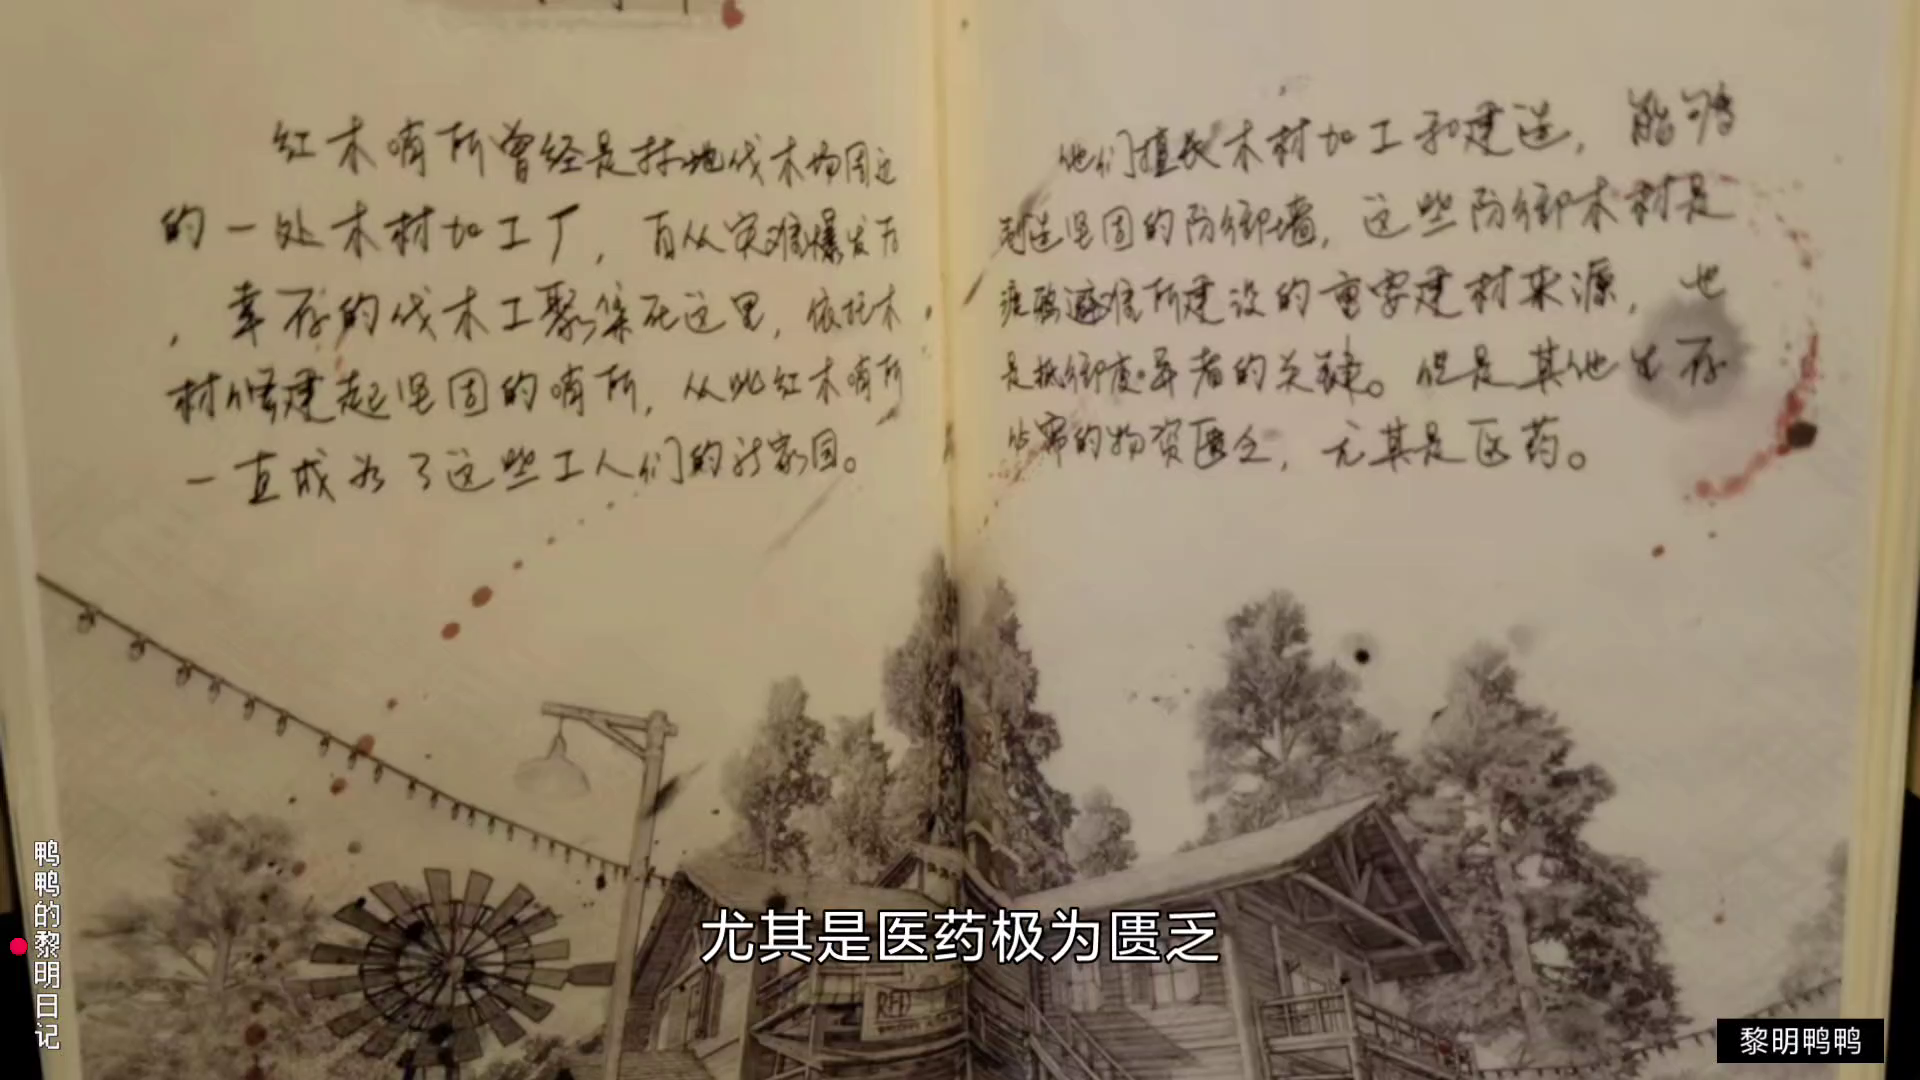 红木哨所曾经是林地伐木场周边
的一处木材加工厂，自从灾难爆发后
，幸存的伐木工聚集在这里，依托木
材修建起坚固的哨所，从此红木哨所
一直成为了这些工人们的新家园。
他们擅长木材加工和建造，能够
制造坚固的防御墙，这些防御木材是
庇护避难所建设的重要建材来源，也
是抵御变异者的关键。但是其他生存
必需的物资匮乏，尤其是医药。
RED
尤其是医药极为匮乏
鸭鸭的黎明日记
黎明鸭鸭